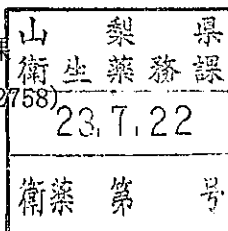 山梨県
課
衛生薬務課
2758)
23.7.22
衛薬第 号